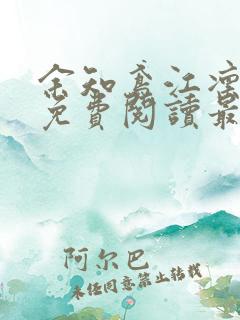 余知鸢江凛
免費閱讀最
阿尔巴
未经同意禁止转载